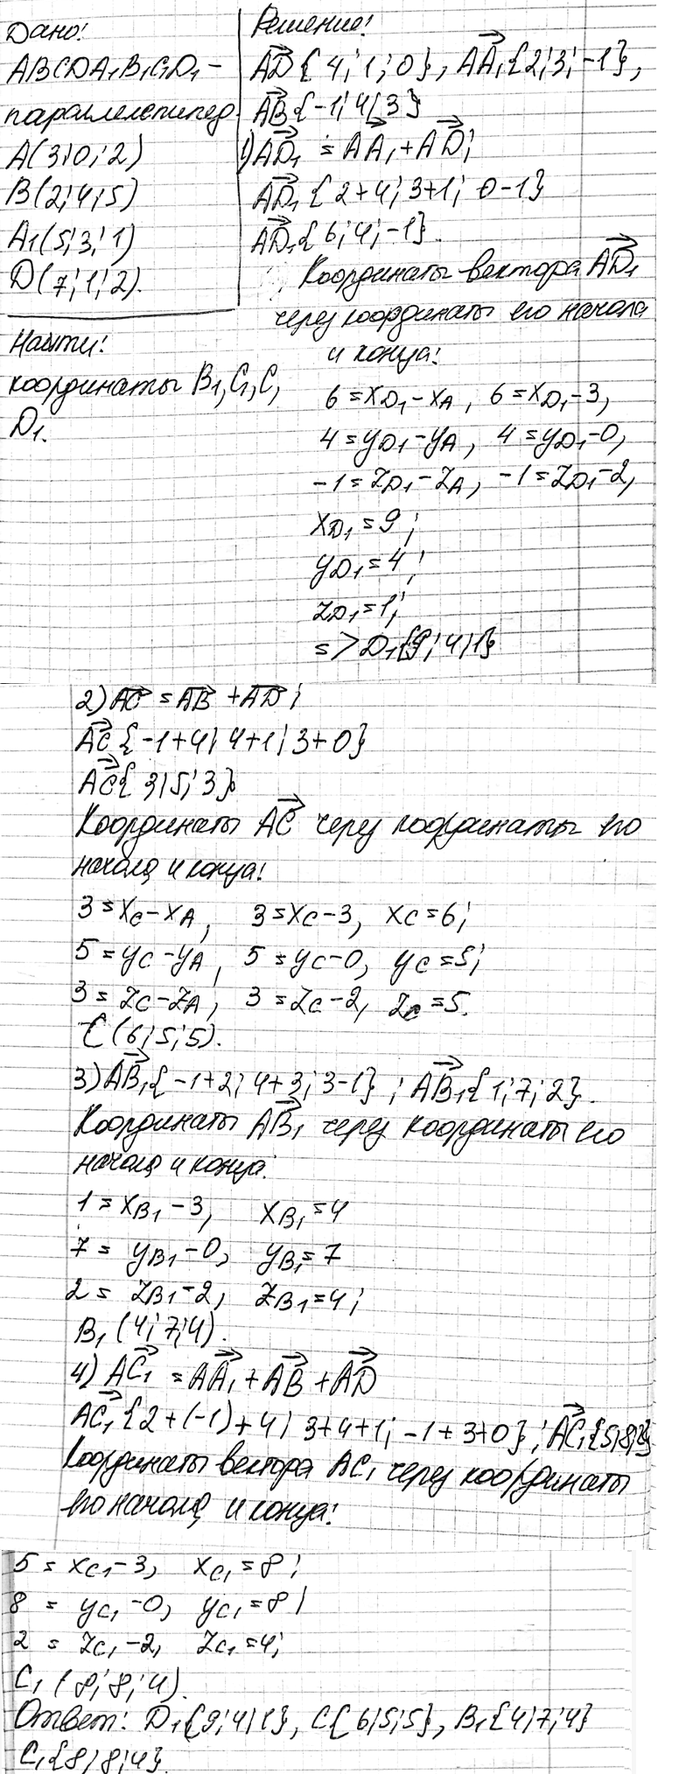 Дано:
ABCDA₁B₁C₁D₁ -
параллелепипед
A(3;0;2)
B(2;4;5)
A₁(5;3;1)
D(7;1;2).
Найти:
координаты B₁, C₁, C,
D₁.
Решение:
AD→{4;1;0}, AA₁→{2;3;-1},
AB→{-1;4;3}
1) AD₁→ = AA₁→ + AD→;
AD₁→{2+4; 3+1; 0-1}
AD₁→{6;4;-1}.
Координаты вектора AD₁→
через координаты его начала
и конца:
6 = x_D₁ - x_A, 6 = x_D₁ - 3,
4 = y_D₁ - y_A, 4 = y_D₁ - 0,
-1 = z_D₁ - z_A, -1 = z_D₁ - 2,
x_D₁ = 9;
y_D₁ = 4;
z_D₁ = 1;
=> D₁{9;4;1}
2) AC→ = AB→ + AD→;
AC→{-1+4; 4+1; 3+0}
AC→{3;5;3}
Координаты AC→ через координаты его
начала и конца:
3 = x_C - x_A, 3 = x_C - 3, x_C = 6;
5 = y_C - y_A, 5 = y_C - 0, y_C = 5;
3 = z_C - z_A, 3 = z_C - 2, z_C = 5.
C(6;5;5).
3) AB₁→{-1+2; 4+3; 3-1}; AB₁→{1;7;2}.
Координаты AB₁→ через координаты его
начала и конца:
1 = x_B₁ - 3, x_B₁ = 4
7 = y_B₁ - 0, y_B₁ = 7
2 = z_B₁ - 2, z_B₁ = 4;
B₁(4;7;4).
4) AC₁→ = AA₁→ + AB→ + AD→
AC₁→{2+(-1)+4; 3+4+1; -1+3+0}; AC₁→{5;8;2}
Координаты вектора AC₁ через координаты
его начала и конца:
5 = x_C₁ - 3, x_C₁ = 8;
8 = y_C₁ - 0, y_C₁ = 8;
2 = z_C₁ - 2, z_C₁ = 4;
C₁(8;8;4).
Ответ: D₁{9;4;1}, C{6;5;5}, B₁{4;7;4}
C₁{8;8;4}.